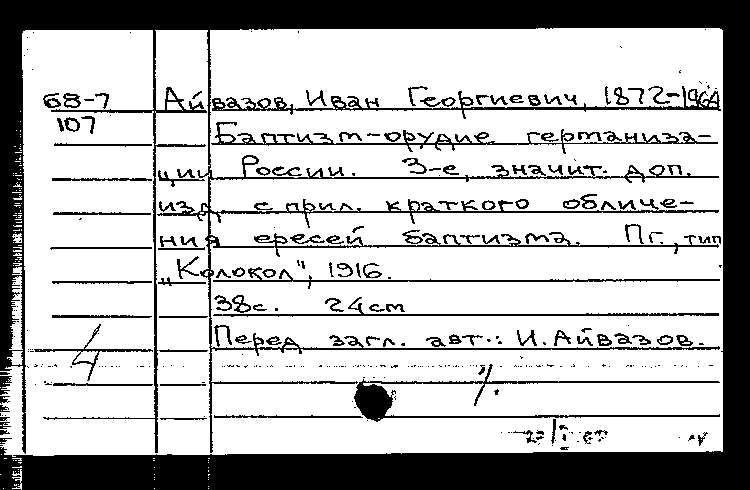 68-7 Айвазов, Иван Георгиевич, 1872-1964
107 Баптизм-орудие германиза-
ции России. 3-е, значит. доп.
изд. с прил. краткого обличе-
ния ересей баптизма. Пг., тип
„Колокол", 1916.
38с. 24см
Перед загл. авт.: И. Айвазов.
4